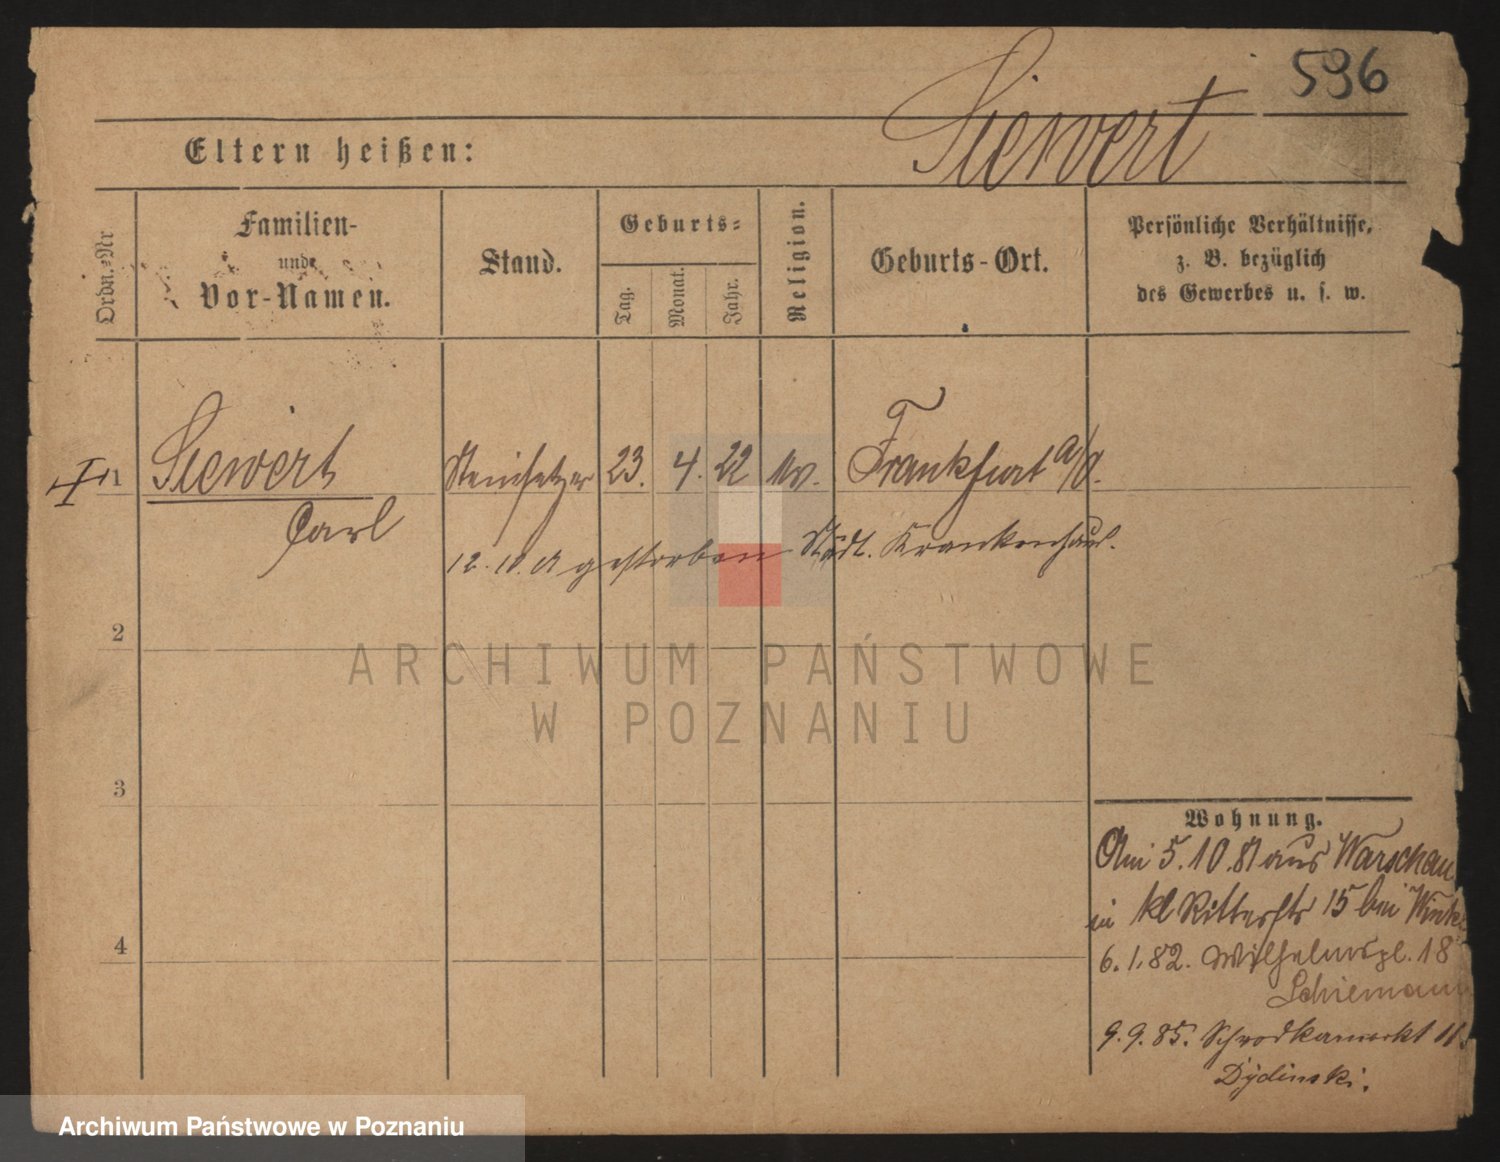 596
Siewert
Eltern heißen:
Ordn.-Nr
Familien-
und
Vor-Namen.
Stand.
Geburts-
Tag.
Monat.
Jahr.
Religion.
Geburts-Ort.
Persönliche Verhältnisse,
z. B. bezüglich
des Gewerbes u. s. w.
1 Siewert Steinsetzer 23. 4. 22 Frankfurt a/O.
Carl
12. 10. gestorben Städt. Krankenhaus.
2
ARCHIWUM PAŃSTWOWE
W POZNANIU
3
Wohnung.
Am 5. 10. 81 aus Warschau
in kl Ritterstr 15 bei
4
6. 1. 82. Wilhelmspl. 18
Schiemann
9. 9. 85. Schrodkamarkt
Dydinski.
Archiwum Państwowe w Poznaniu